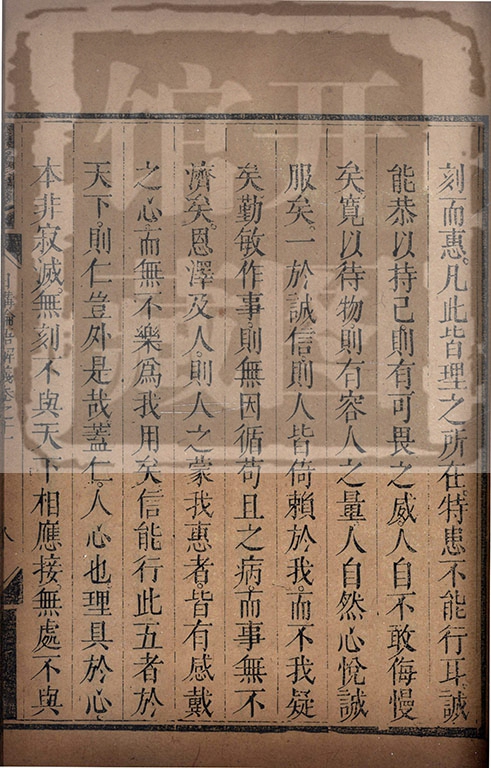 刻而惠。凡此皆理之所在。特患不能行耳。誠
能恭以持己。則有可畏之威。人自不敢侮慢
矣。寬以待物。則有容人之量。人自然心悅誠
服矣。一於誠信。則人皆倚賴於我。而不我疑
矣。勤敏作事。則無因循苟且之病。而事無不
濟矣。恩澤及人。則人之蒙我惠者。皆有感戴
之心。而無不樂為我用矣。信能行此五者於
天下。則仁豈外是哉。蓋仁。人心也。理具於心。
本非寂滅。無刻不與天下相應接。無處不與
日講論語解義卷之十一
八
開館
圖藏